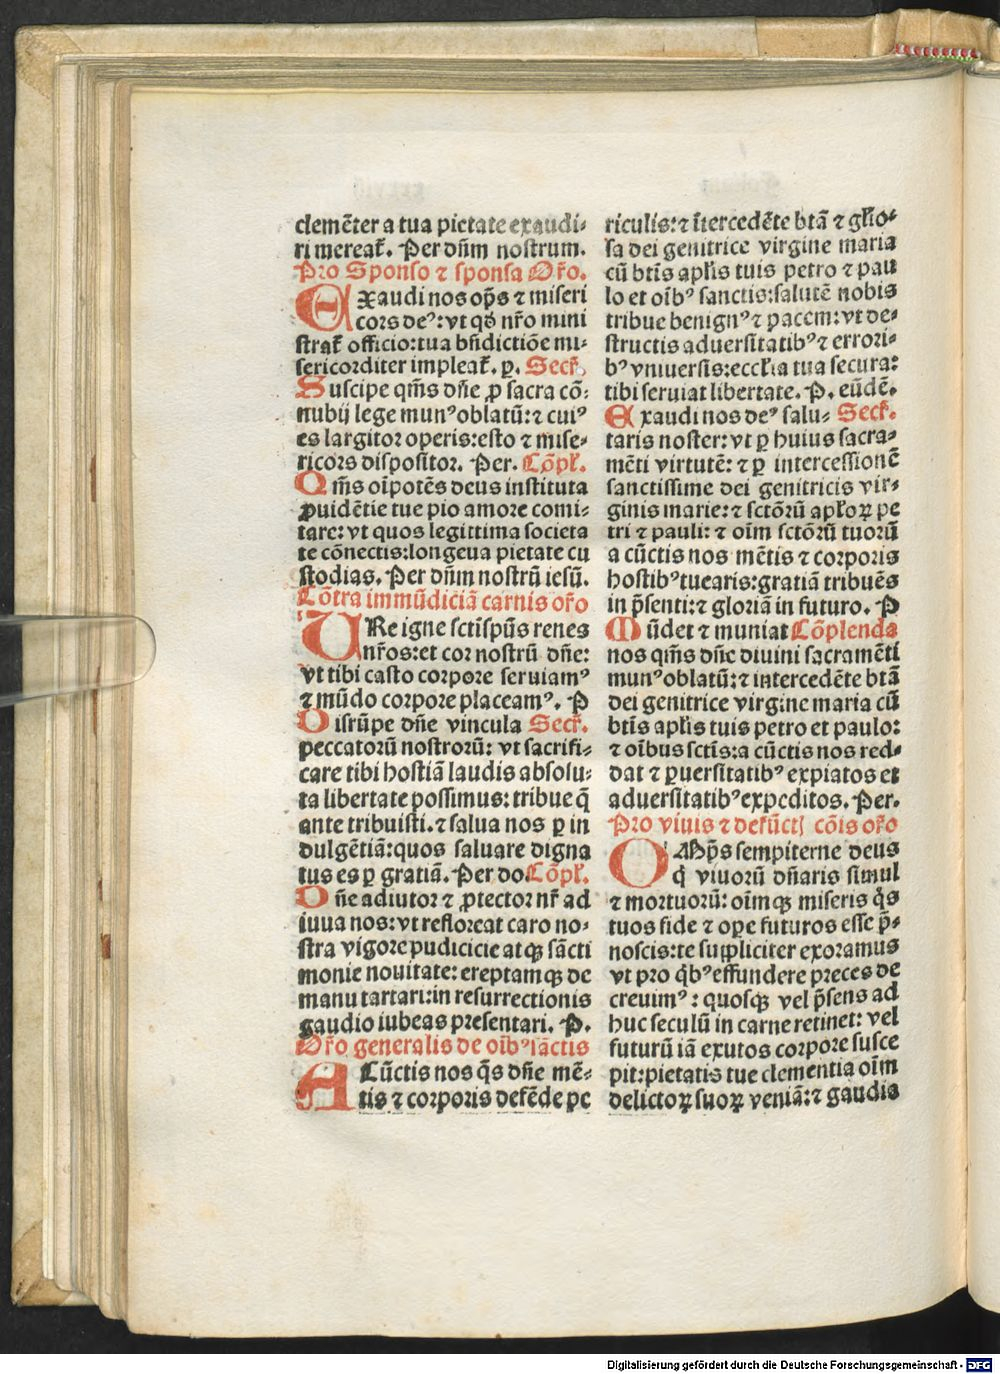 clemẽter a tua pietate exaudi⸗
ri mereat᷒. Per dñm nostrum.
Pro Sponso ⁊ sponsa Or̃o.
EXaudi nos op̃s ⁊ miseri
cors deꝰ: vt qd̃ nr̃o mini
strat᷒ officio: tua bñdictiõe mi⸗
sericorditer impleat᷒. p. Secr̃.
Suscipe qm̃s dñe ꝓ sacra cõ⸗
nubij lege munꝰ oblatũ: ⁊ cuiꝰ
es largitor operis: esto ⁊ mise⸗
ricors dispositor. Per. Cõpl̃.
Qm̃s oĩpotẽs deus instituta
ꝓuidẽtie tue pio amore comi⸗
tare: vt quos legittima societa
te cõnectis: longeua pietate cu
stodias. Per dñm nostrũ iesũ.
Cõtra immũdiciã carnis or̃o
VRe igne scti sp̃us renes
nr̃os: et cor nostrũ dñe:
vt tibi casto corpore seruiamꝰ
⁊ mũdo corpore placeamꝰ. P
Disrũpe dñe vincula Secr̃.
peccatorũ nostrorũ: vt sacrifi⸗
care tibi hostiã laudis absolu⸗
ta libertate possimus: tribue q̃
ante tribuisti. ⁊ salua nos ꝑ in
dulgẽtiã: quos saluare digna
tus es ꝑ gratiã. Per do. Cõpl̃.
Dñe adiutor ⁊ ꝓtector nr̃ ad
iuua nos: vt refloreat caro no⸗
stra vigore pudicicie atqꝫ sãcti
monie nouitate: ereptamqꝫ de
manu tartari: in resurrectionis
gaudio iubeas presentari. P.
Or̃o generalis de oĩbꝰ sãctis
A Cũctis nos q̃s dñe mẽ⸗
tis ⁊ corporis defẽde pe
riculis: ⁊ ĩtercedẽte btã ⁊ gl̃io⸗
sa dei genitrice virgine maria
cũ btĩs apl̃is tuis petro ⁊ pau
lo et oĩbꝰ sanctis: salutẽ nobis
tribue benignꝰ ⁊ pacem: vt de⸗
structis aduersitatibꝰ ⁊ errori⸗
bꝰ vniuersis: eccl̃ia tua secura:
tibi seruiat libertate. P. eũdẽ.
Exaudi nos deꝰ salu⸗ Secr̃.
taris noster: vt ꝑ huius sacra⸗
mẽti virtutẽ: ⁊ ꝑ intercessionẽ
sanctissime dei genitricis vir⸗
ginis marie: ⁊ sctõrũ apl̃oꝝ pe
tri ⁊ pauli: ⁊ oĩm sctõrũ tuorũ
a cũctis nos mẽtis ⁊ corporis
hostibꝰ tuearis: gratiã tribuẽs
in p̃senti: ⁊ gloriã in futuro. P
Mũdet ⁊ muniat Cõplenda
nos qm̃s dñe diuini sacramẽti
munꝰ oblatũ: ⁊ intercedẽte btã
dei genitrice virgine maria cũ
btĩs apl̃is tuis petro et paulo:
⁊ oĩbus sctĩs: a cũctis nos red⸗
dat ⁊ ꝑuersitatibꝰ expiatos et
aduersitatibꝰ expeditos. Per.
Pro viuis ⁊ defũctꝭ cõis or̃o
OMñp̃s sempiterne deus
q̃ viuorũ dñaris simul
⁊ mortuorũ: oĩmqꝫ miseris q̃s
tuos fide ⁊ oꝑe futuros esse p̃⸗
noscis: te suppliciter exoramus
vt pro q̃bꝰ effundere preces de
creuimꝰ: quosqꝫ vel p̃sens ad
huc seculũ in carne retinet: vel
futurũ iã exutos corpore susce
pit: pietatis tue clementia oĩm
delictoꝝ suoꝝ veniã: ⁊ gaudia
Digitalisierung gefördert durch die Deutsche Forschungsgemeinschaft - DFG